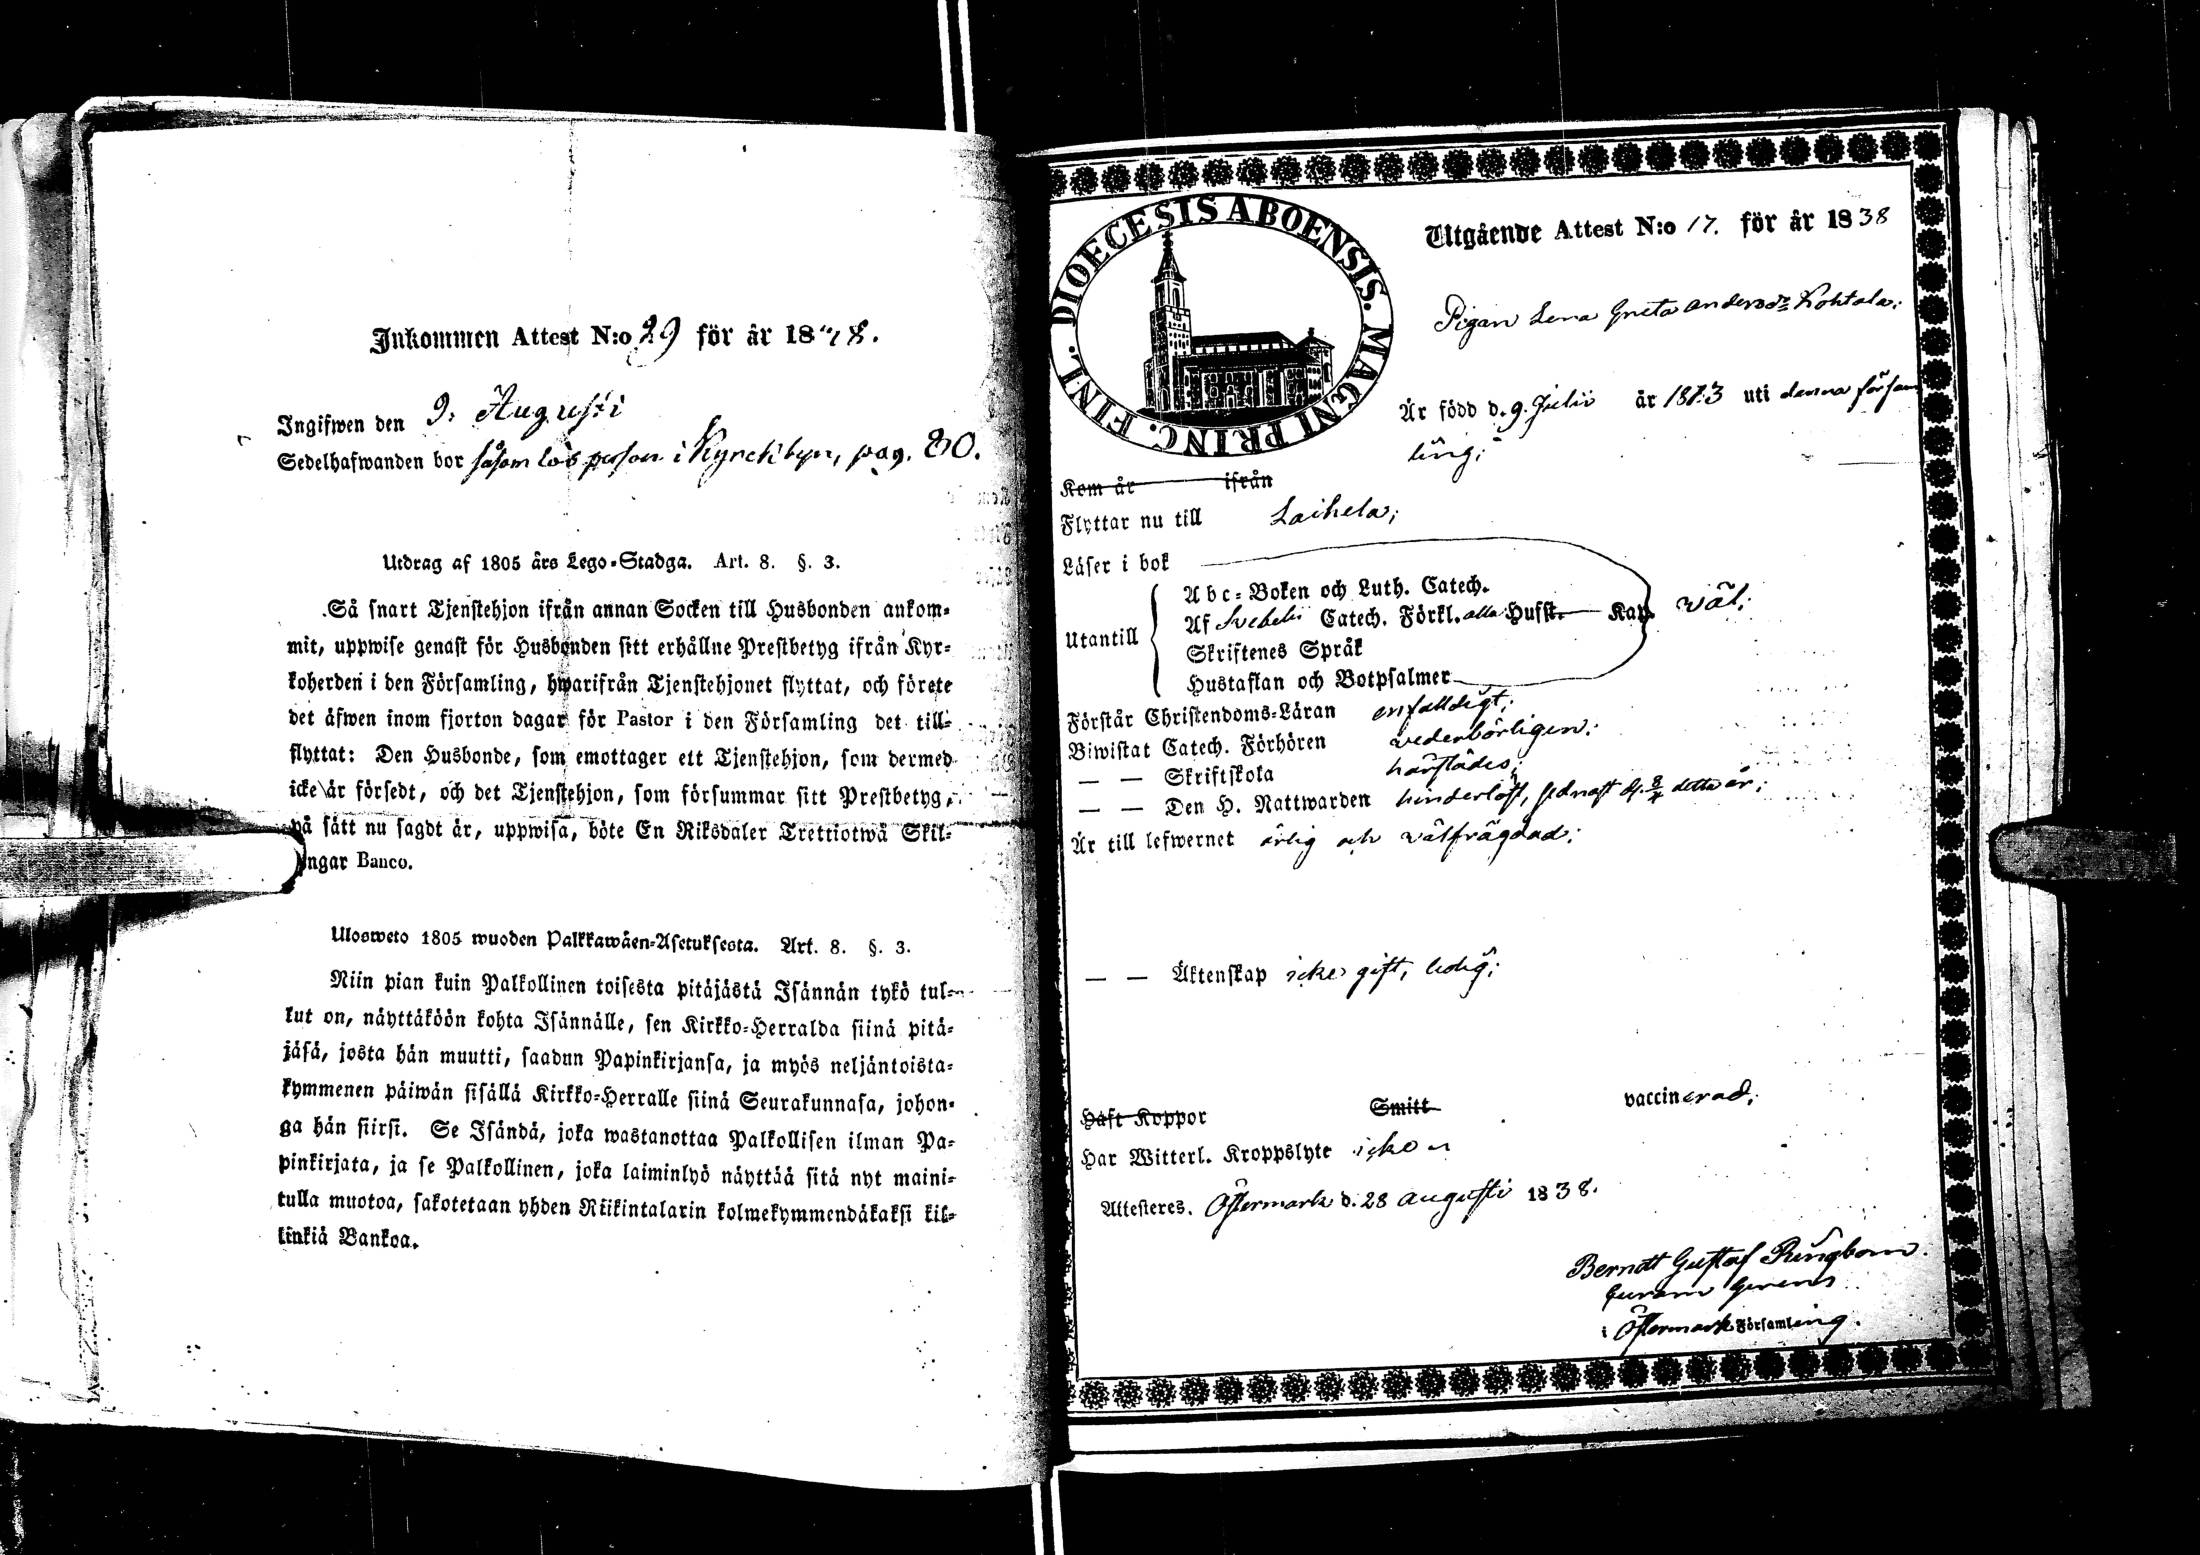 Inkommen Attest N:o 29 för år 18"18.
Ingifwen den 9: Augusti
Sedelhafwanden bor såsom lös person i Kyrckbyn, pag. 80.
Utdrag af 1805 års Lego-Stadga. Art. 8. §. 3.
Så snart Tjenstehjon ifrån annan Socken till Husbonden ankom-
mit, uppwise genast för Husbonden sitt erhållne Prestbetyg ifrån Kyr-
koherden i den Församling, hwarifrån Tjenstehjonet flyttat, och förete
det äfwen inom fjorton dagar för Pastor i den Församling det till-
flyttat: Den Husbonde, som emottager ett Tjenstehjon, som dermed
icke är försedt, och det Tjenstehjon, som försummar sitt Prestbetyg,
på sätt nu sagdt är, uppwisa, böte En Riksdaler Trettiotwå Skil-
ingar Banco.
Ulosweto 1805 wuoden Palkkawäen-Asetuksesta. Art. 8. §. 3.
Niin pian kuin Palkollinen toisesta pitäjästä Isännän tykö tul-
kut on, näyttäköön kohta Isännälle, sen Kirkko-Herralda siinä pitä-
jäsä, josta hän muutti, saadun Papinkirjansa, ja myös neljäntoista-
kymmenen päiwän sisällä Kirkko-Herralle siinä Seurakunnasa, johon-
ga hän siirsi. Se Isändä, joka wastanottaa Palkollisen ilman Pa-
pinkirjata, ja se Palkollinen, joka laiminlyö näyttää sitä nyt maini-
tulla muotoa, sakotetaan yhden Riikintalarin kolmekymmendäkaksi kil-
linkiä Bankoa.
DIOECESIS ABOENSIS. MAGNI PRINC. FINL.
Utgående Attest N:o 17. för år 1838
Pigan Lena Greta Andersdr Kohtala;
Är född d. 9. Julii år 1813 uti denna försam
ling;
Kom år ifrån
Flyttar nu till Laihela;
Läser i bok
Abc-Boken och Luth. Catech.
Utantill Af Svebelii Catech. Förkl. alla Husst. Kap. väl;
Skriftenes Språk
Hustaflan och Botpsalmer
Förstår Christendoms-Läran enfaldigt;
Biwistat Catech. Förhören vederbörligen;
— — Skriftskola härstädes;
— — Den H. Nattwarden hinderlöst, sednast d. 8/4 detta år;
Är till lefwernet ärlig och välfrägdad;
— — Äktenskap icke gift, ledig;
Haft Koppor Smitt vaccinerad;
Har Witterl. Kroppslyte icke
Attesteres. Östermark d. 28 Augusti 1838.
Berndt Gustaf Rungbom.
Curam Gerens
i Östermark Församling.